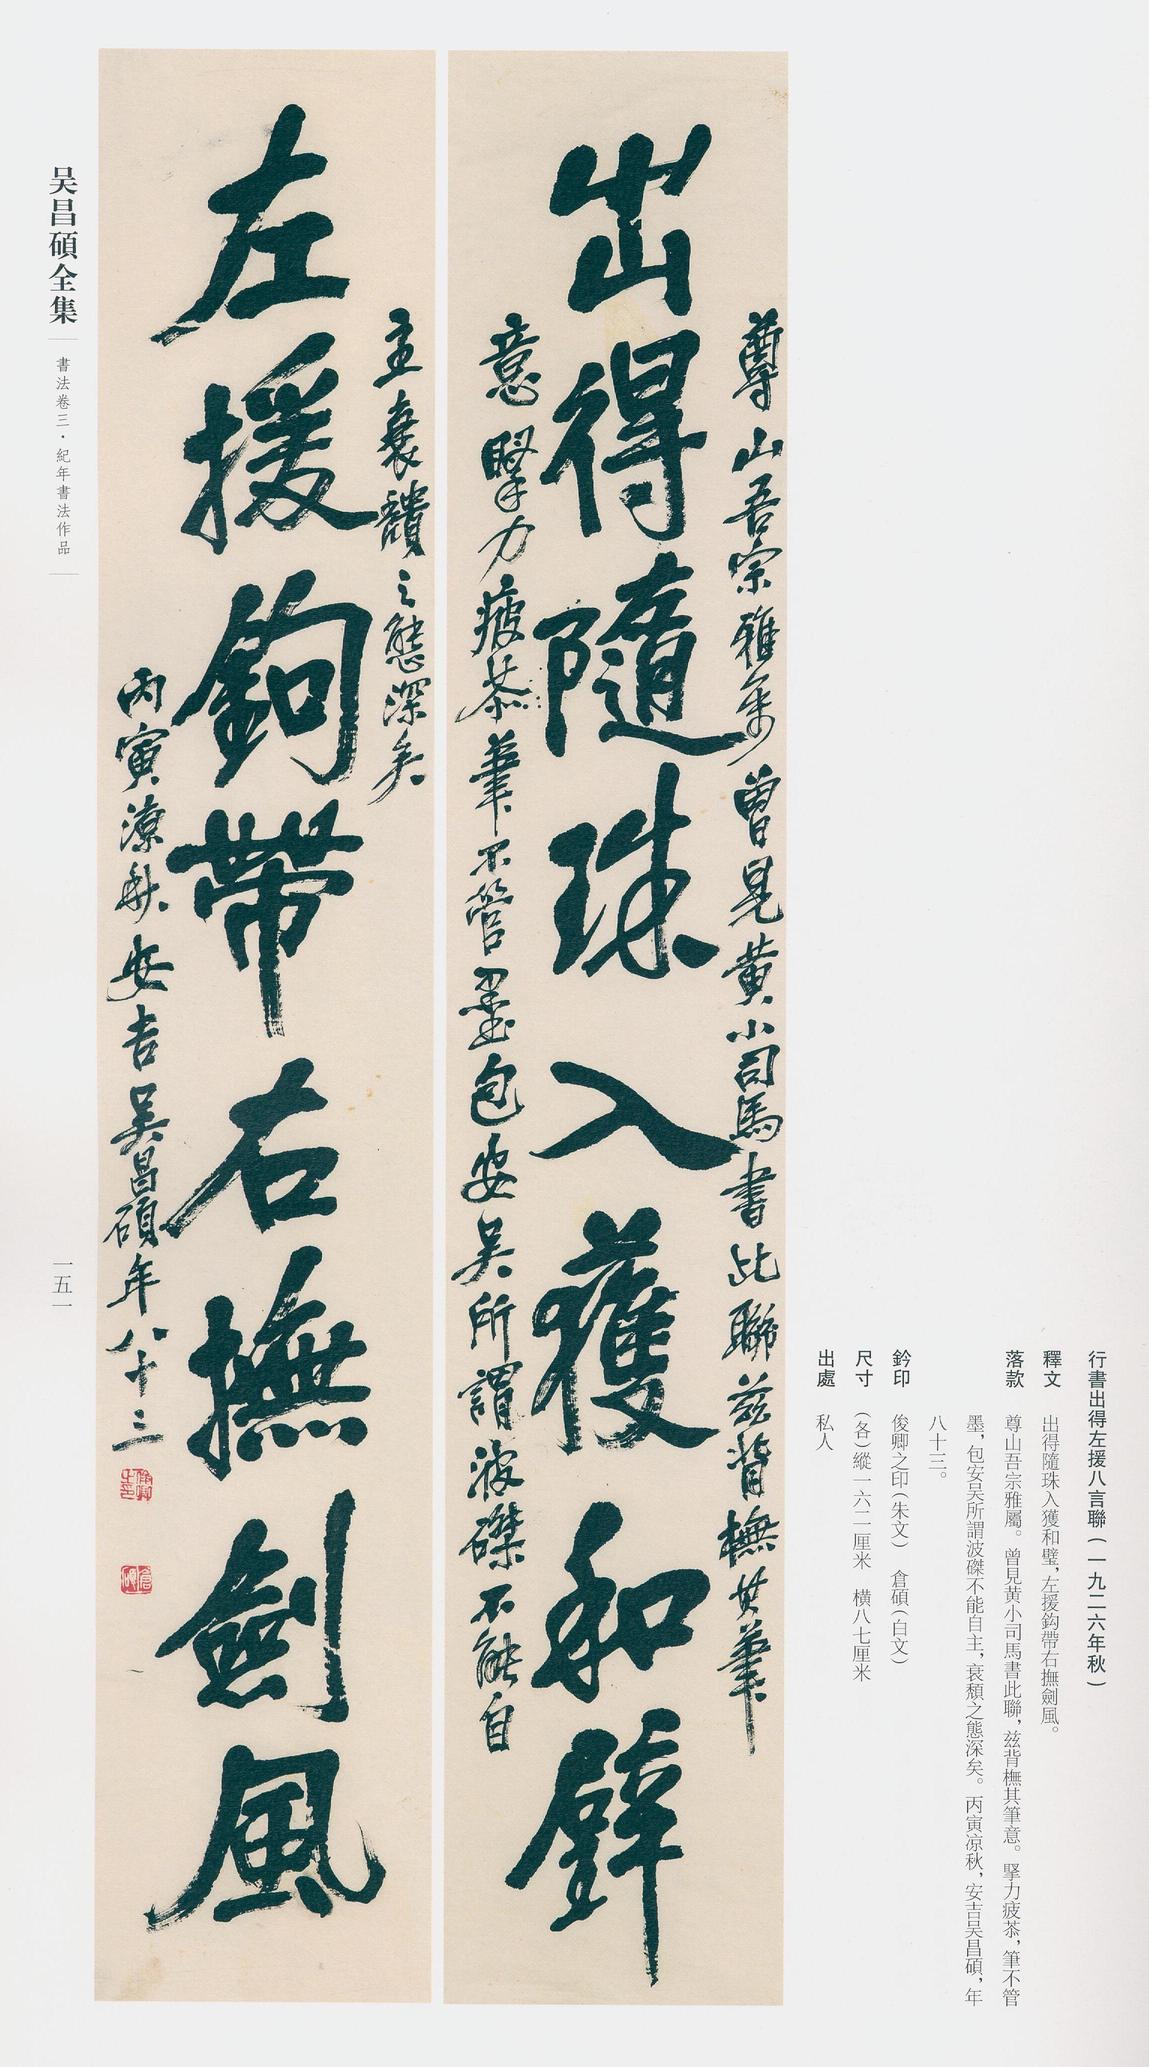 行書出得左援八言聯（一九二六年秋）
釋文　出得隨珠入獲和璧，左援鈎帶右撫劍風。
落款　尊山吾宗雅屬。曾見黄小司馬書此聯，兹背橅其筆意。掔力疲苶，筆不管
墨，包安吴所謂波磔不能自主，衰頽之態深矣。丙寅凉秋，安吉吴昌碩，年
八十三。
鈐印　俊卿之印（朱文）　倉碩（白文）
尺寸　（各）縱一六二厘米　横八七厘米
出處　私人
尊山吾宗雅屬曾見黄小司馬書此聯兹背橅其筆
出得隨珠入獲和璧
意掔力疲苶筆不管墨包安吴所謂波磔不能自
主衰頽之態深矣
左援鈎帶右撫劍風
丙寅凉秋安吉吴昌碩年八十三
俊卿之印
倉碩
吴昌碩全集
書法卷三·紀年書法作品
一五一